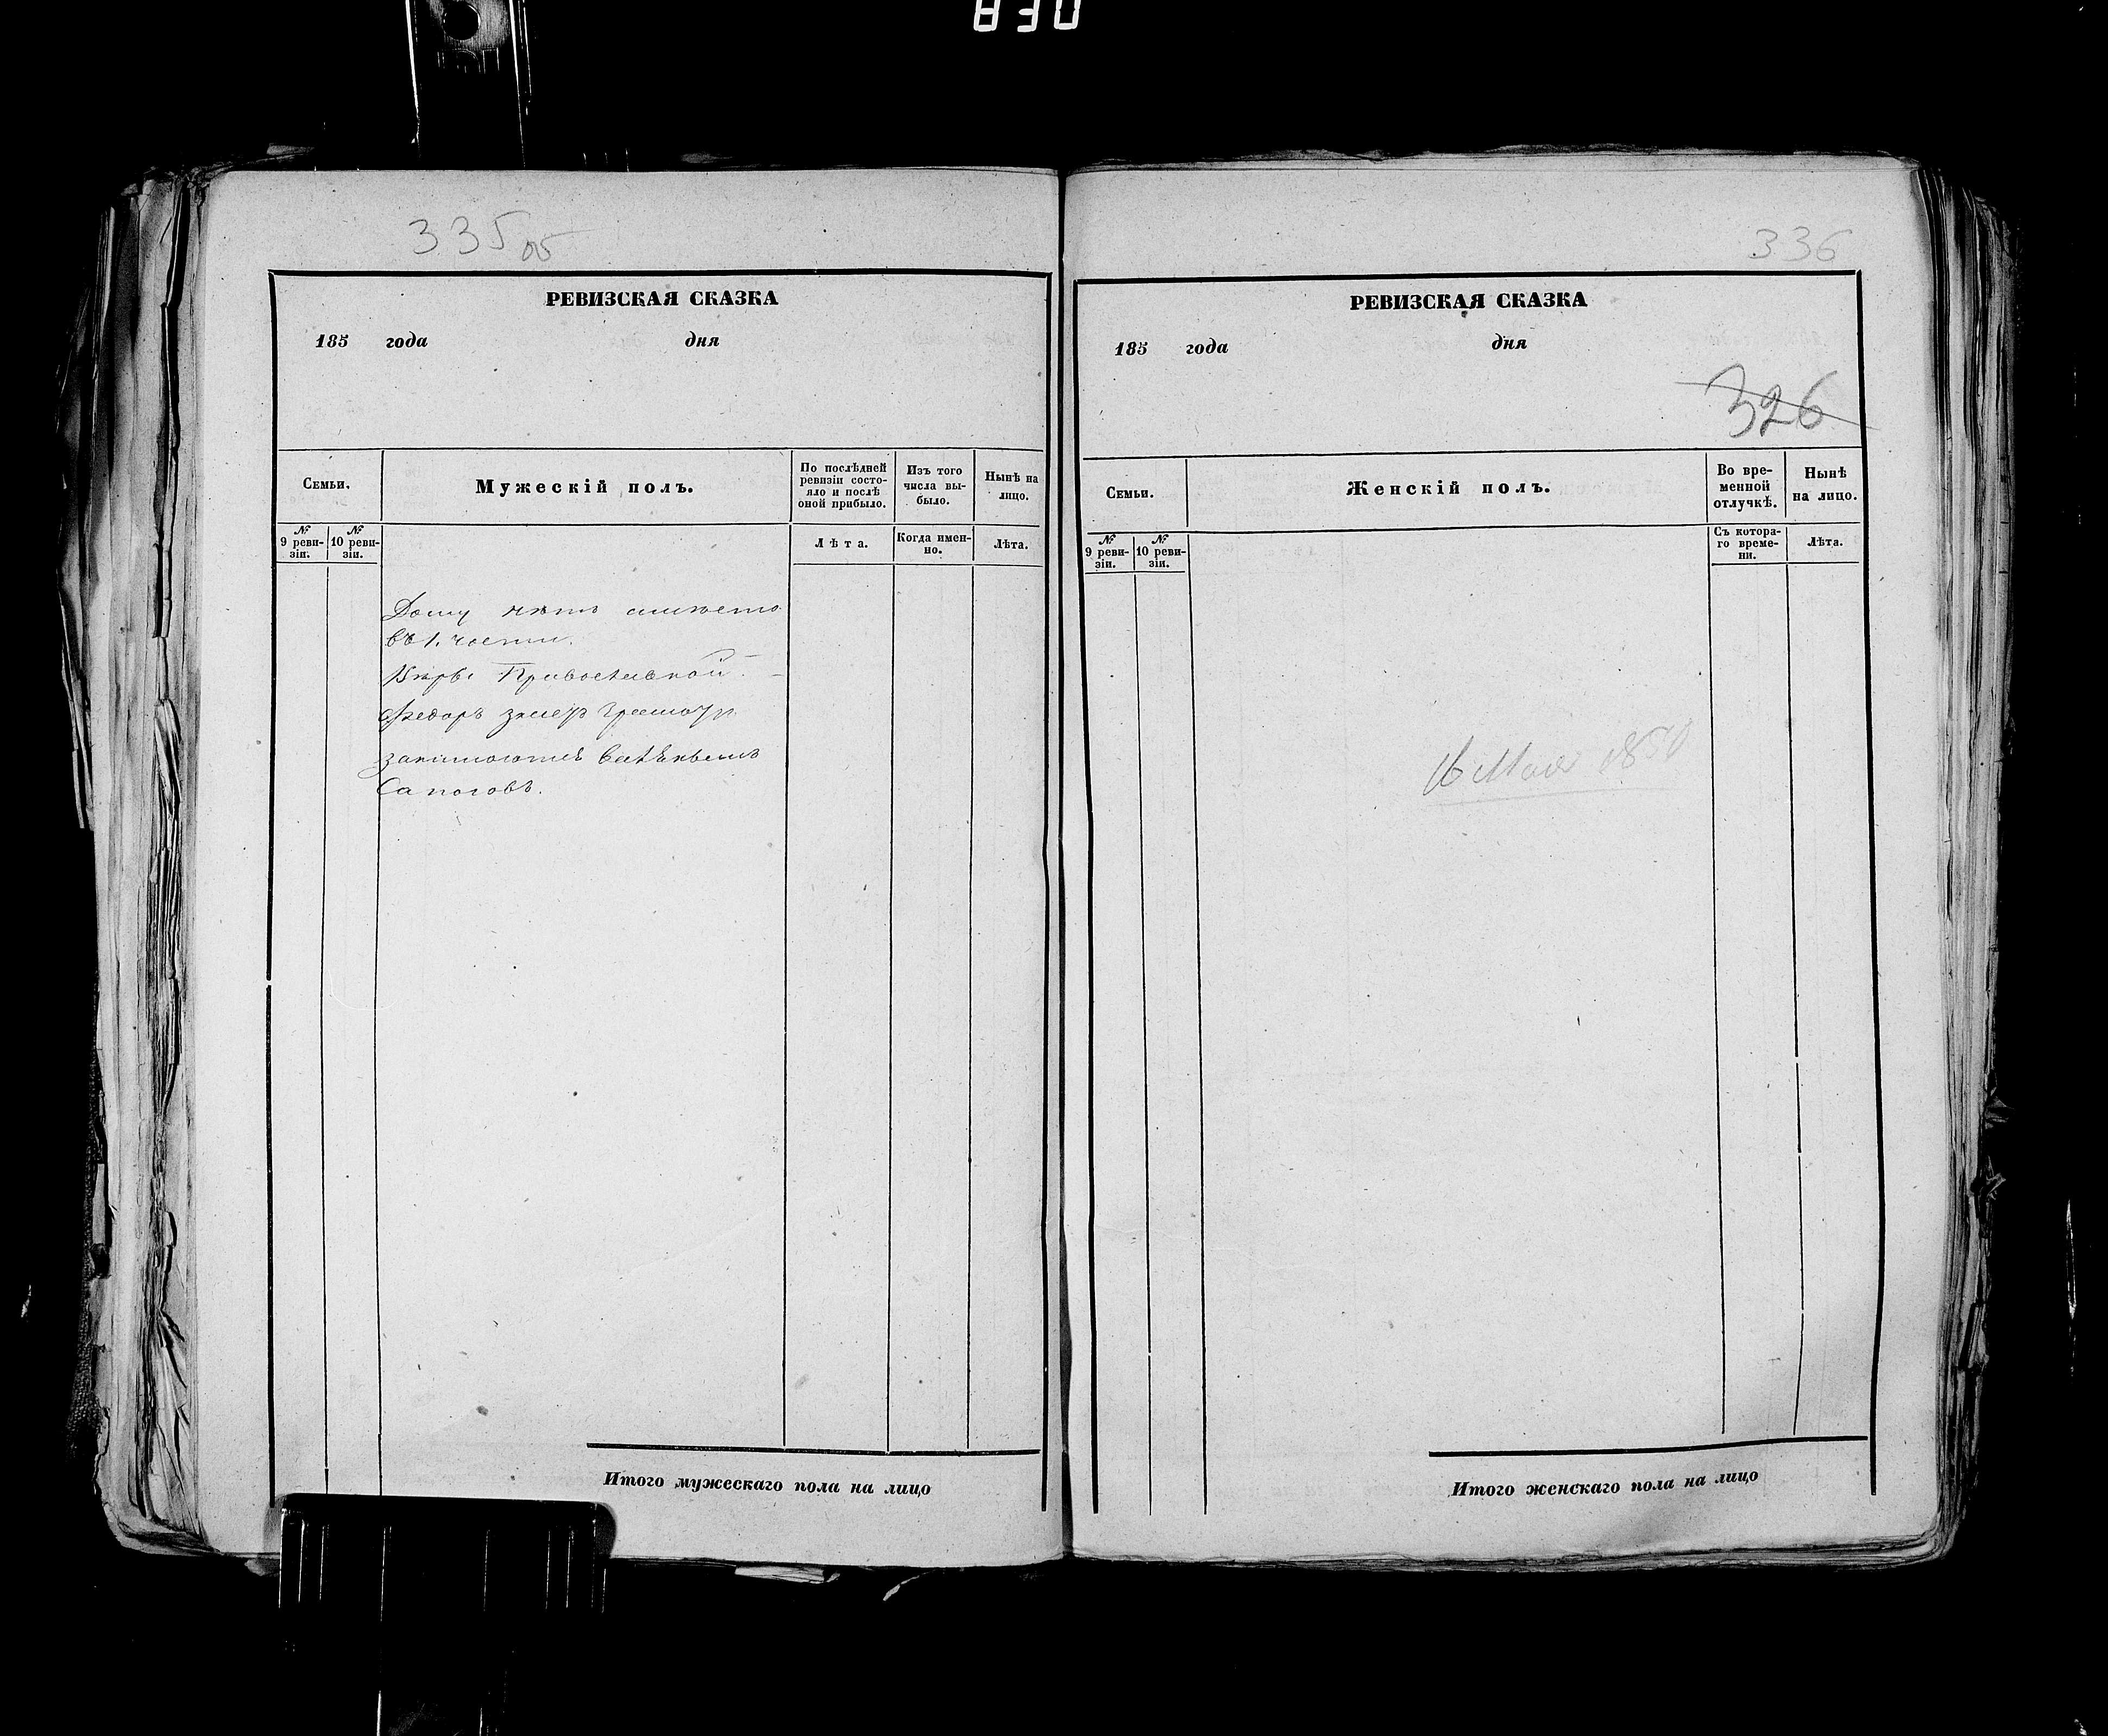 830
335 об
РЕВИЗСКАЯ СКАЗКА
185 года дня
Семьи.
Мужескій полъ.
По послѣдней
ревизіи состо-
яло и послѣ
оной прибыло.
Изъ того
числа вы-
было.
Нынѣ на
лицо.
№
9 реви-
зіи.
№
10 реви-
зіи.
Лѣта.
Когда имен-
но.
Лѣта.
Дому нѣтъ
въ 1. части.
Вѣры Православной.
Федоръ грамоту
занимаются
Сапоговъ.
Итого мужескаго пола на лицо
336
РЕВИЗСКАЯ СКАЗКА
185 года дня
326
Семьи.
Женскій полъ.
Во вре-
менной
отлучкѣ.
Нынѣ
на лицо.
№
9 реви-
зіи.
№
10 реви-
зіи.
Съ котора-
го време-
ни.
Лѣта.
16 Мая
Итого женскаго пола на лицо